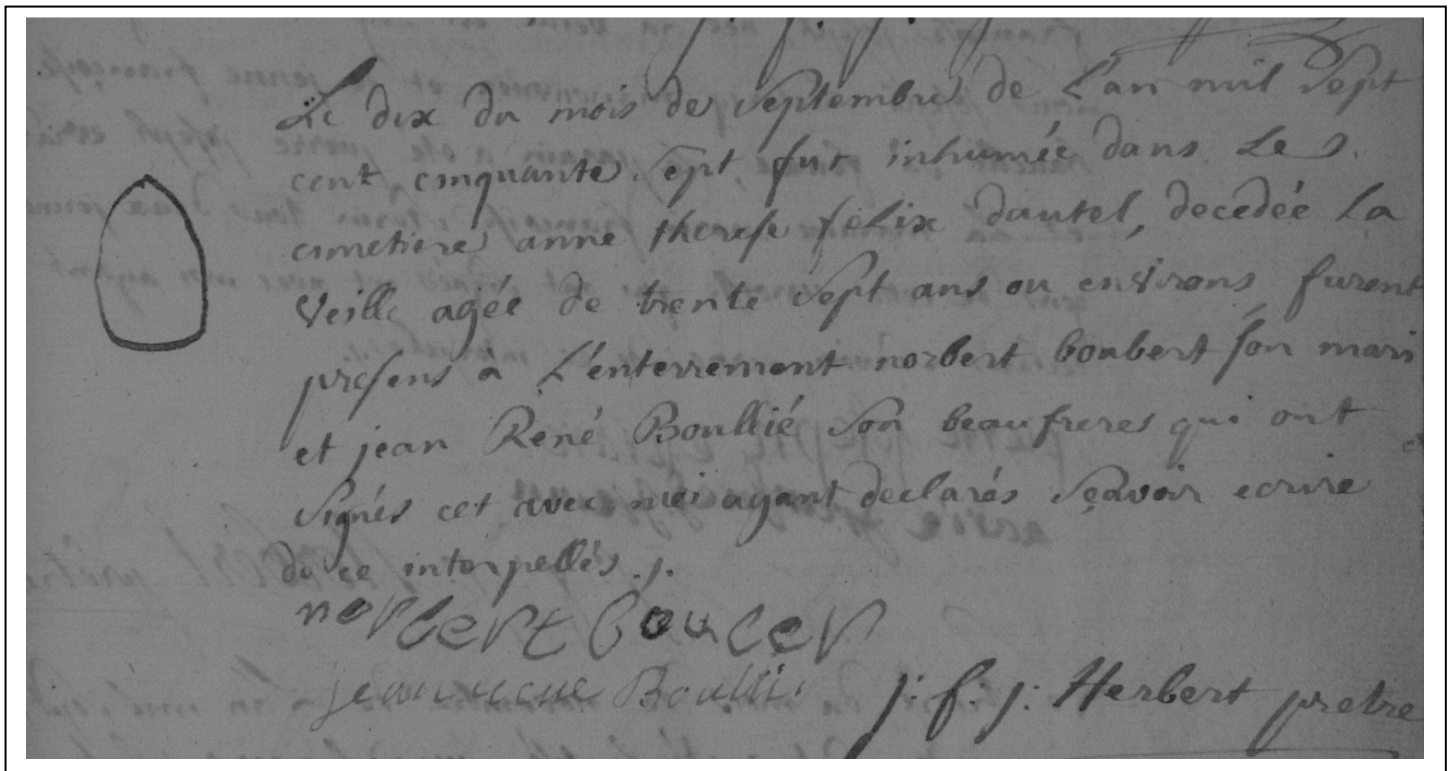 Le dix du mois de Septembre de L'an mil Sept
cent cinquante Sept fut inhumée dans Le S.
cimetiere anne therese felix dautel, decedée La
Veille agée de trente Sept ans ou environs furent
presens à L'enterrement norbert boubert Son mari
et jean René Boullié Son beaufreres qui ont
Signés cet avec moi ayant declarés Sçavoir ecrire
de ce interpellés ./.
norbert bouber
jean rene Boullie
j: f. j: Herbert pretre